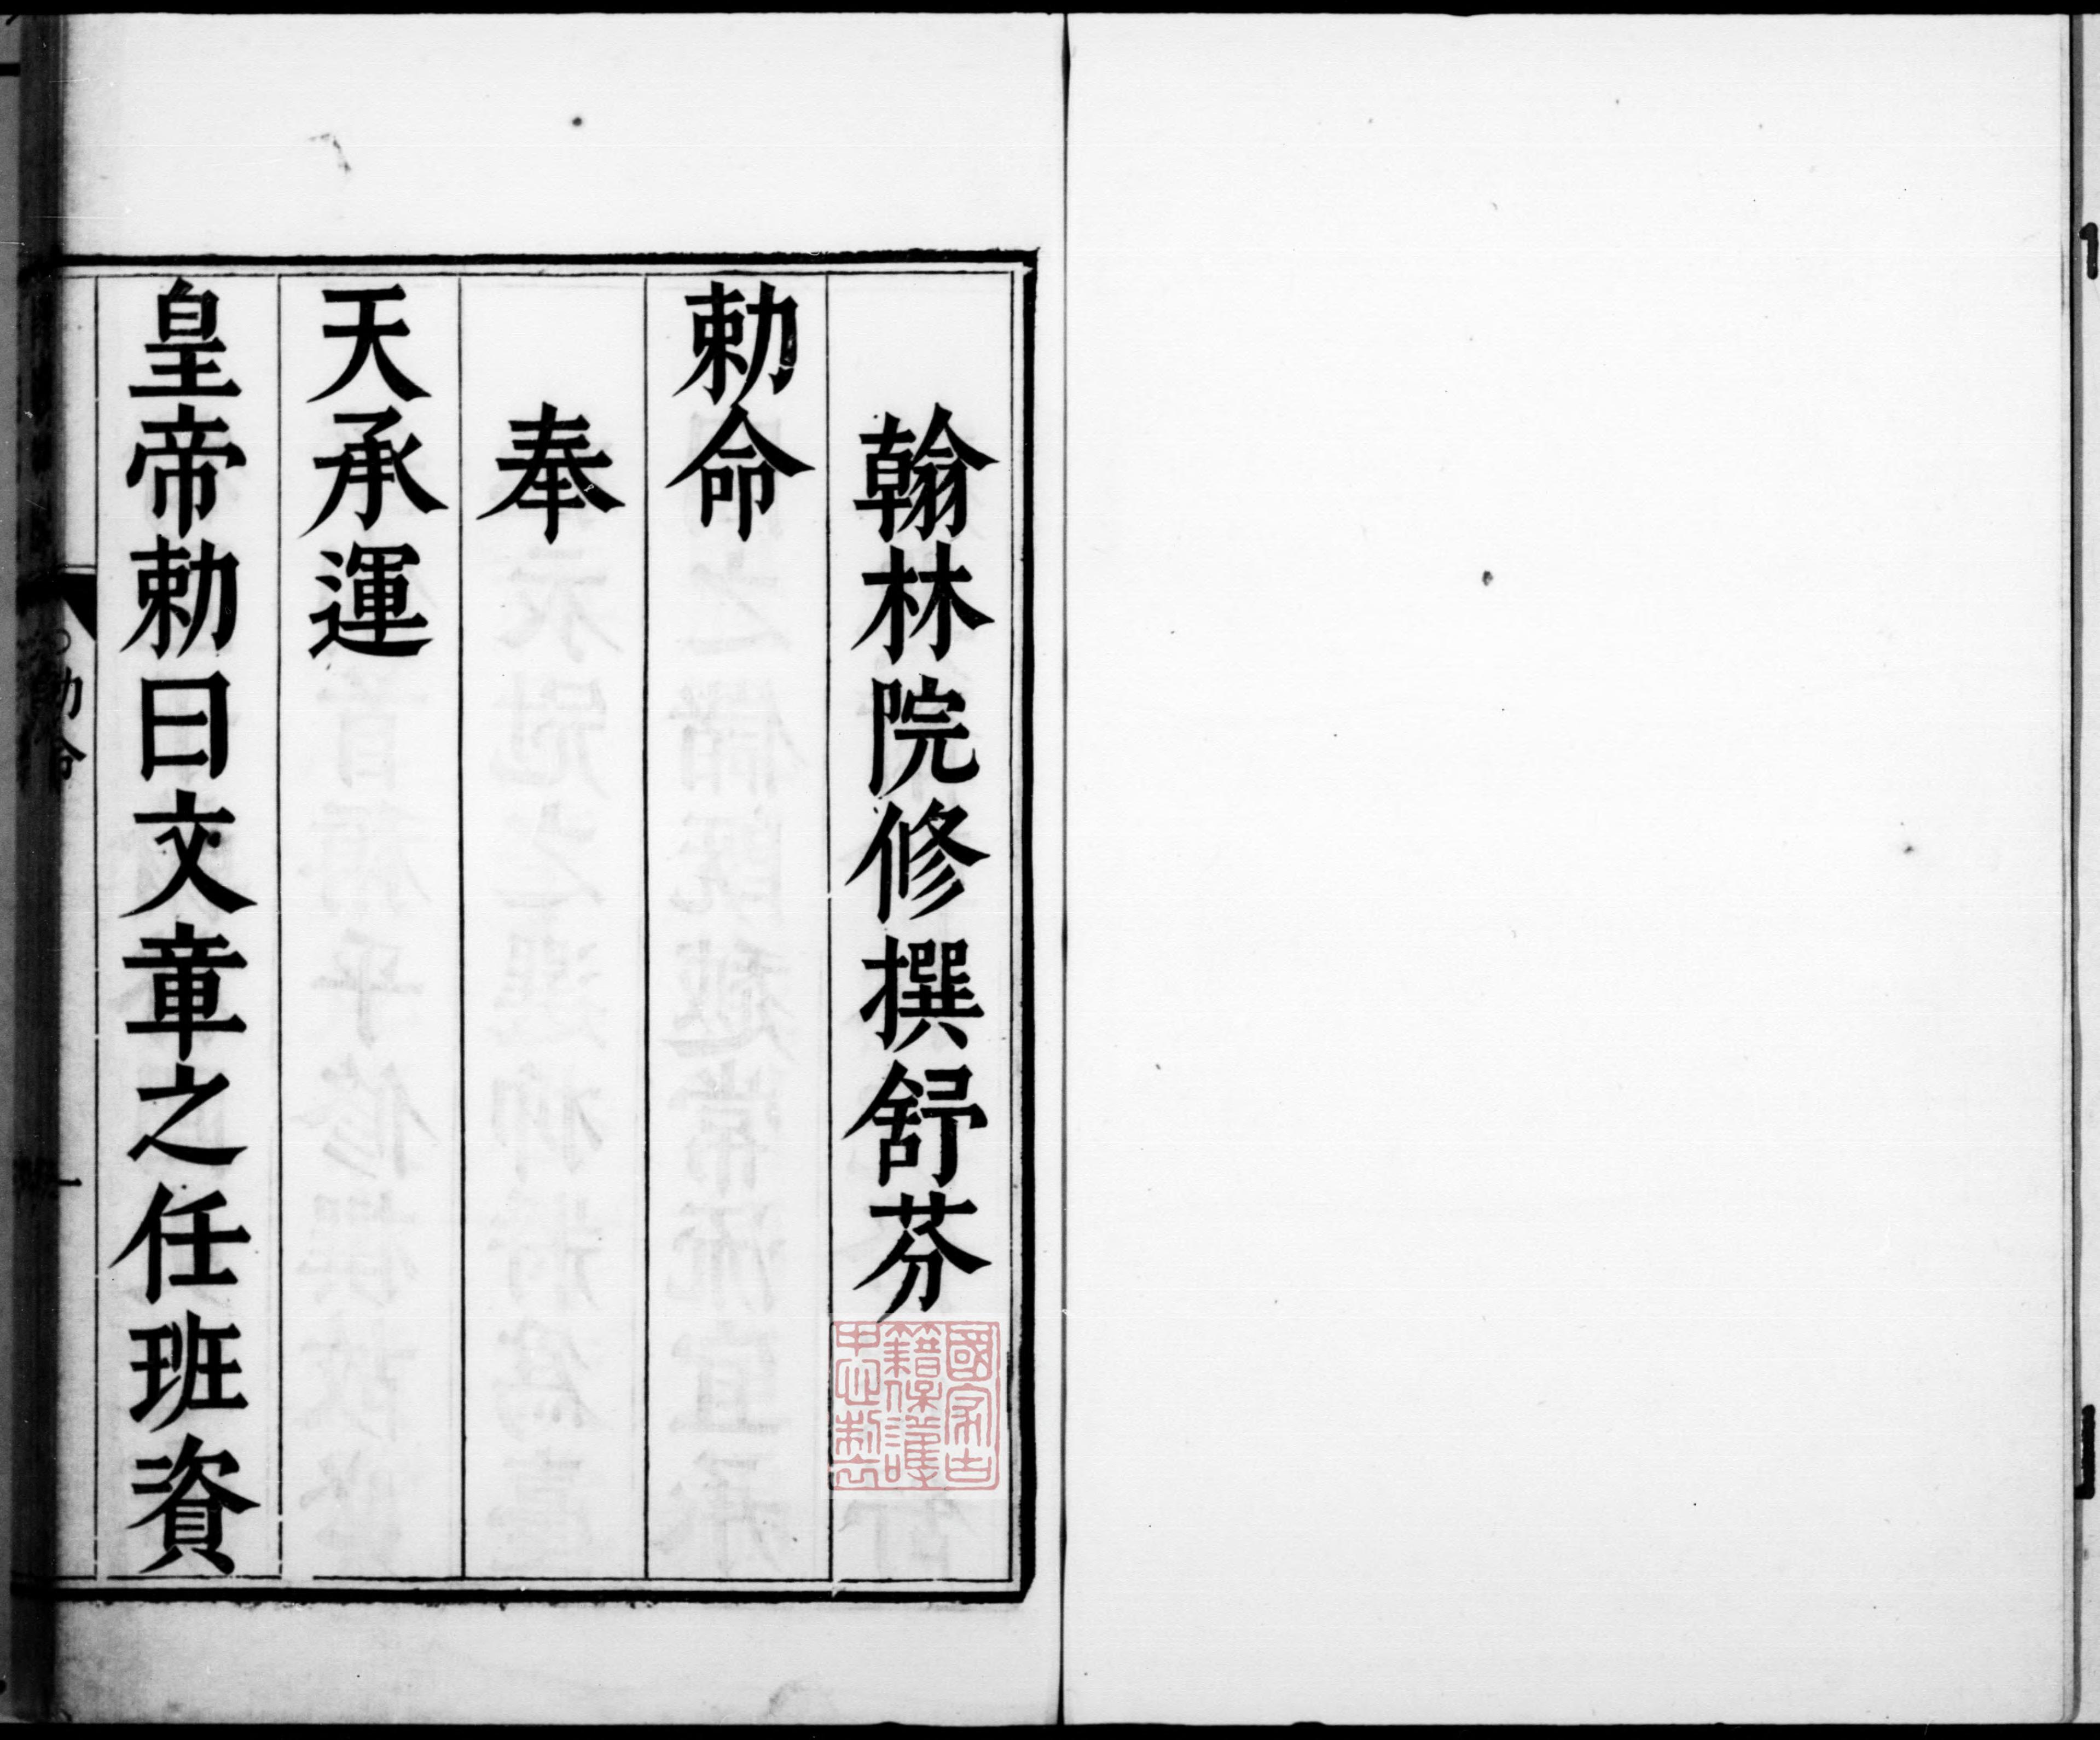 翰林院修撰舒芬
勅命
奉
天承運
皇帝勅曰文章之任班資
國家古
籍保護
中心制作